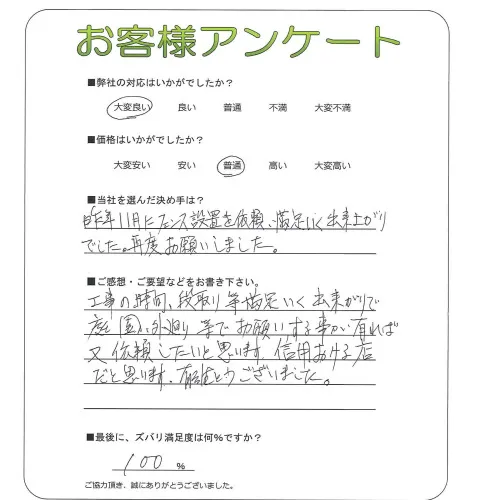 お客様アンケート
■弊社の対応はいかがでしたか?
大変良い 良い 普通 不満 大変不満
■価格はいかがでしたか?
大変安い 安い 普通 高い 大変高い
■当社を選んだ決め手は?
昨年11月にフェンス設置を依頼、満足いく出来上がり
でした。再度お願いしました。
■ご感想・ご要望などをお書き下さい。
工事の時間、段取り等満足いく出来がりで
庭園、水廻り等でお願いする事が有れば
又依頼したいと思います。信用おける店
だと思います。有難とうございました。
■最後に、ズバリ満足度は何%ですか?
100 %
ご協力頂き、誠にありがとうございました。